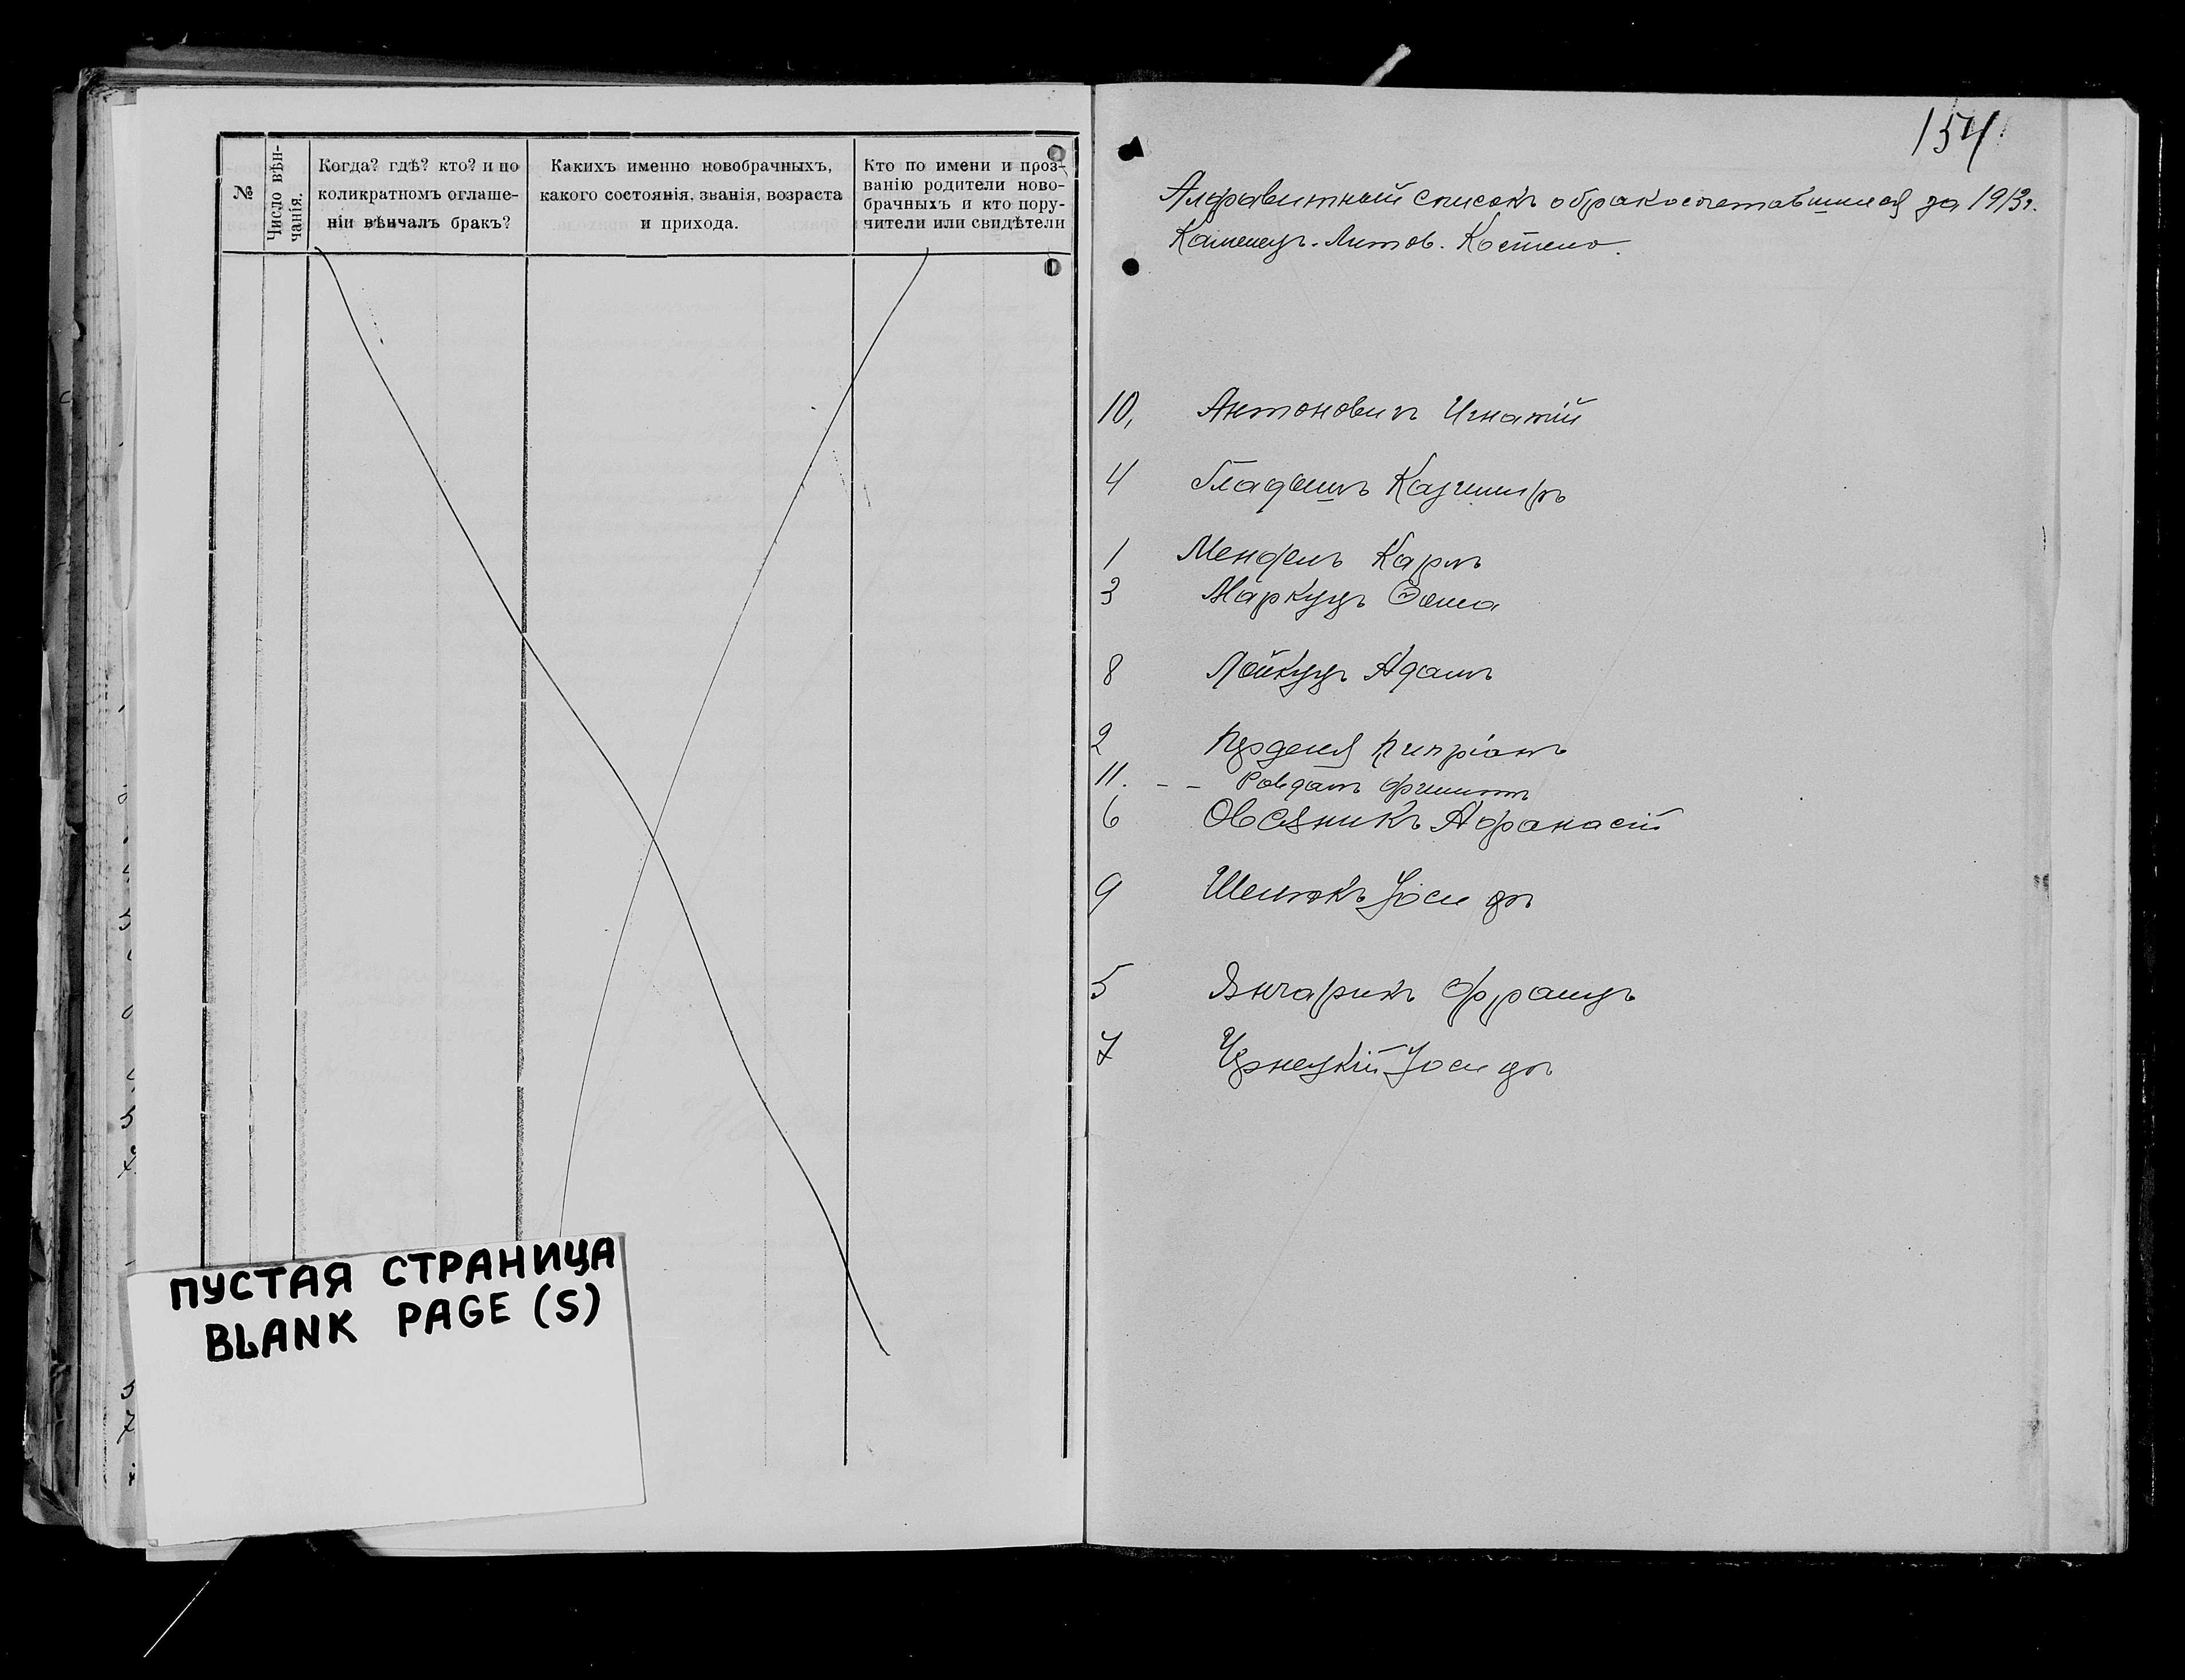 №
Число вѣн-
чанія.
Когда? гдѣ? кто? и по
коликратномъ оглаше-
ніи вѣнчалъ бракъ?
Какихъ именно новобрачныхъ,
какого состоянія, званія, возраста
и прихода.
Кто по имени и проз-
ванію родители ново-
брачныхъ и кто пору-
чители или свидѣтели
ПУСТАЯ СТРАНИЦА
BLANK PAGE (S)
154
Алфавитный списокъ о бракосочетавшихся за 1913г.
Каменец. Литов. Костела.
10, Антоновичъ Игнатій
4 Гладышъ Казиміръ
1 Мендель Карлъ
3 Маркуцъ Ѳома
8 Лойкуцъ Адамъ
2 Кипріанъ
11. - -
6 Овсяникъ Афанасій
9 Шелюкъ Іосифъ
5 Янчарикъ Францъ
7 Чернецкій Іосифъ